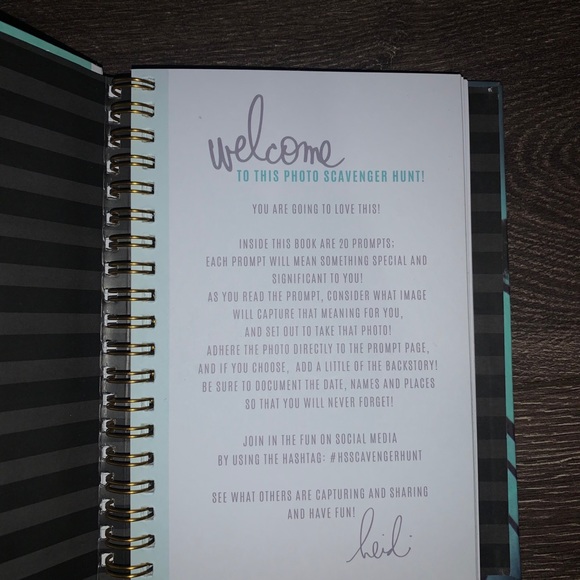 welcome
TO THIS PHOTO SCAVENGER HUNT!
YOU ARE GOING TO LOVE THIS!
INSIDE THIS BOOK ARE 20 PROMPTS;
EACH PROMPT WILL MEAN SOMETHING SPECIAL AND
SIGNIFICANT TO YOU!
AS YOU READ THE PROMPT, CONSIDER WHAT IMAGE
WILL CAPTURE THAT MEANING FOR YOU,
AND SET OUT TO TAKE THAT PHOTO!
ADHERE THE PHOTO DIRECTLY TO THE PROMPT PAGE,
AND IF YOU CHOOSE, ADD A LITTLE OF THE BACKSTORY!
BE SURE TO DOCUMENT THE DATE, NAMES AND PLACES
SO THAT YOU WILL NEVER FORGET!
JOIN IN THE FUN ON SOCIAL MEDIA
BY USING THE HASHTAG: #HSSCAVENGERHUNT
SEE WHAT OTHERS ARE CAPTURING AND SHARING
AND HAVE FUN!
heidi